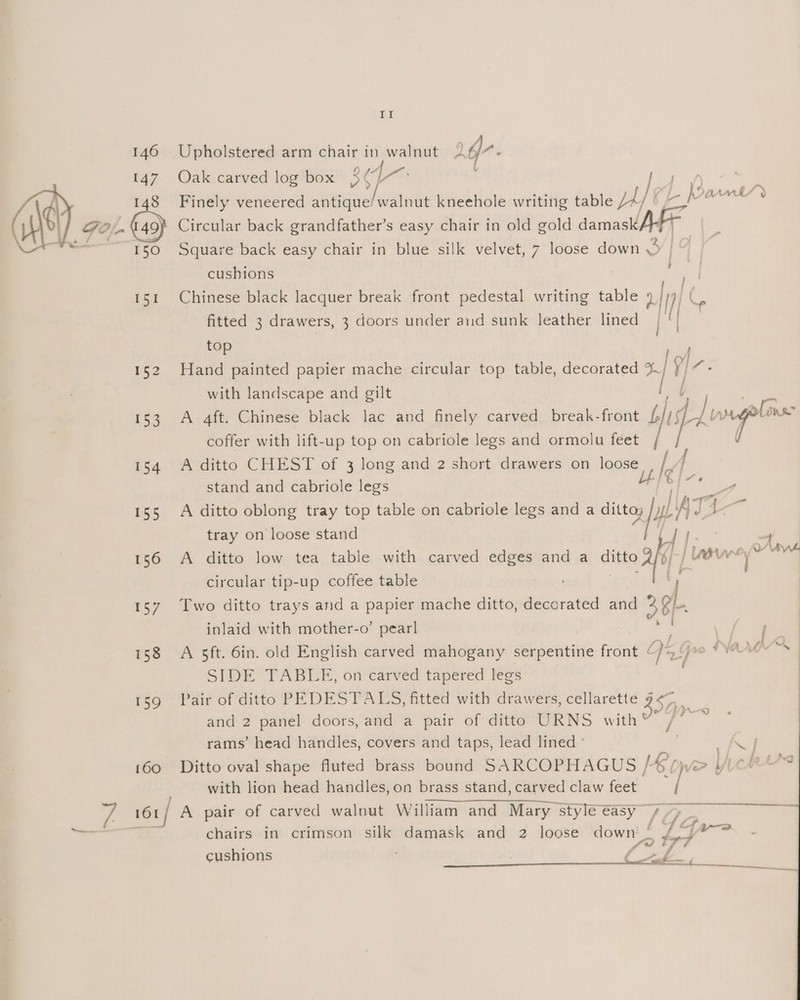 11
146 Upholstered arm chair in walnut
147 Oak carved log box
148 Finely veneered antique walnut kneehole writing table
149 Circular back grandfather's easy chair in old gold damask
150 Square back easy chair in blue silk velvet, 7 loose down
cushions
151 Chinese black lacquer break front pedestal writing table
fitted 3 drawers, 3 doors under and sunk leather lined
top
152 Hand painted papier mache circular top table, decorated
with landscape and gilt
153 A 4ft. Chinese black lac and finely carved break-front
coffer with lift-up top on cabriole legs and ormolu feet
154 A ditto CHEST of 3 long and 2 short drawers on loose
stand and cabriole legs
155 A ditto oblong tray top table on cabriole legs and a ditto
tray on loose stand
156 A ditto low tea table with carved edges and a ditto
circular tip-up coffee table
157 Two ditto trays and a papier mache ditto, decorated and
inlaid with mother-o' pearl
158 A 5ft. 6in. old English carved mahogany serpentine front
SIDE TABLE, on carved tapered legs
159 Pair of ditto PEDESTALS, fitted with drawers, cellarette
and 2 panel doors, and a pair of ditto URNS with
rams' head handles, covers and taps, lead lined
160 Ditto oval shape fluted brass bound SARCOPHAGUS
with lion head handles, on brass stand, carved claw feet
161 A pair of carved walnut William and Mary style easy
chairs in crimson silk damask and 2 loose down
cushions